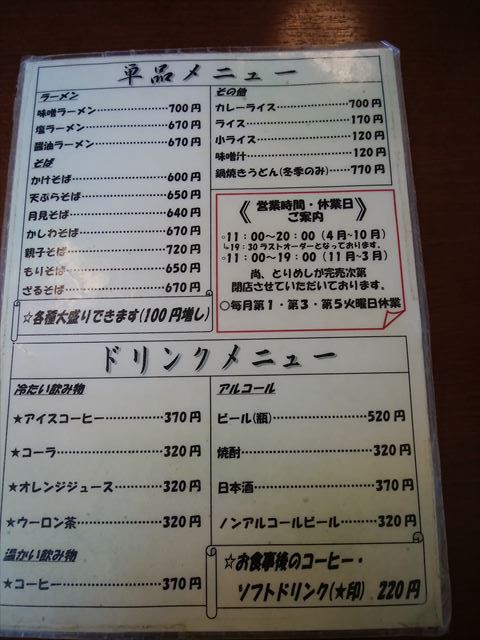 単品メニュー
ラーメン
味噌ラーメン……………700円
塩ラーメン………………670円
醤油ラーメン……………670円
そば
かけそば…………………600円
天ぷらそば………………650円
月見そば…………………640円
かしわそば………………670円
親子そば…………………720円
もりそば…………………650円
ざるそば…………………670円
☆各種大盛りできます(100円増し)
その他
カレーライス……………700円
ライス……………………170円
小ライス…………………120円
味噌汁……………………120円
鍋焼きうどん(冬季のみ)……770円
《 営業時間・休業日 》
ご案内
○11：00～20：00（4月～10月）
↳19：30ラストオーダーとなっております。
○11：00～19：00（11月～3月）
尚、とりめしが完売次第
閉店させていただいております。
○毎月第1・第3・第5火曜日休業
ドリンクメニュー
冷たい飲み物
★アイスコーヒー……………370円
★コーラ………………………320円
★オレンジジュース…………320円
★ウーロン茶…………………320円
温かい飲み物
★コーヒー……………………370円
アルコール
ビール(瓶)……………………520円
焼酎……………………………320円
日本酒…………………………370円
ノンアルコールビール………320円
☆お食事後のコーヒー・
ソフトドリンク(★印) 220円